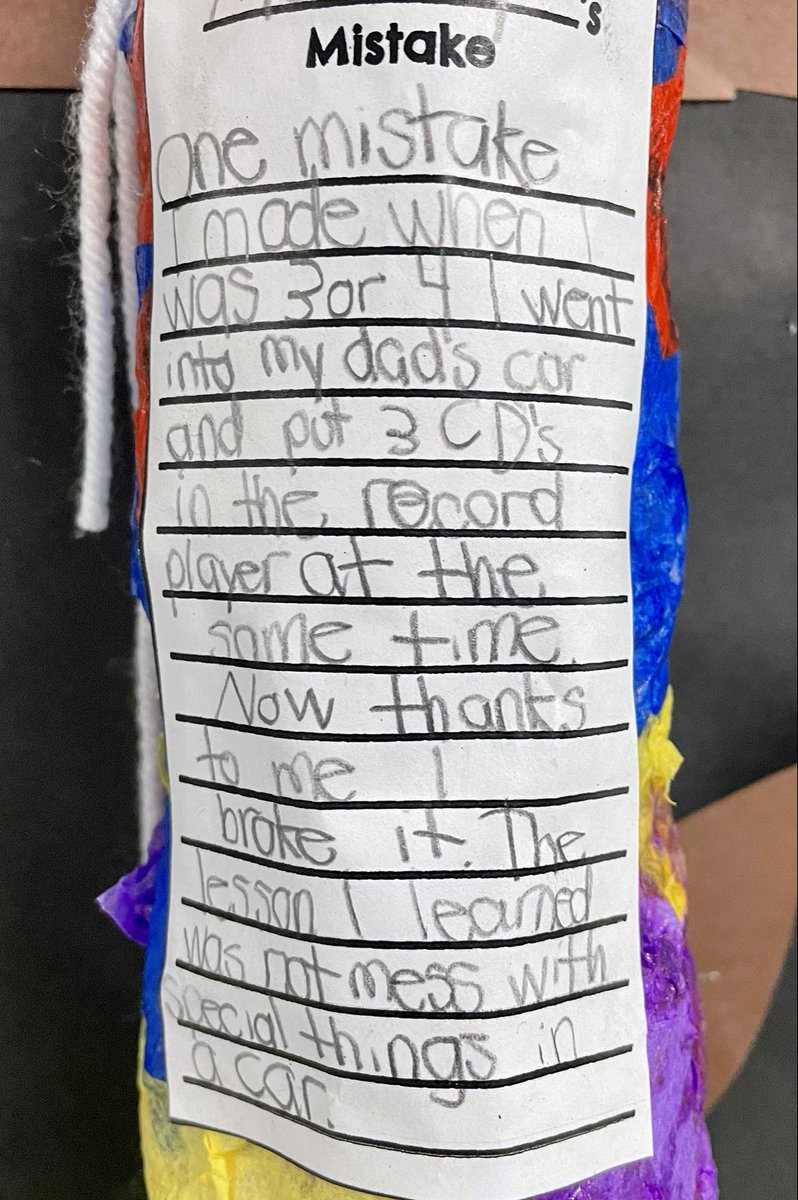 's
Mistake
One mistake
I made when I
was 3 or 4 I went
into my dad's car
and put 3 CD's
in the record
player at the
same time.
Now thanks
to me I
broke it. The
lesson I learned
was not mess with
special things in
a car.